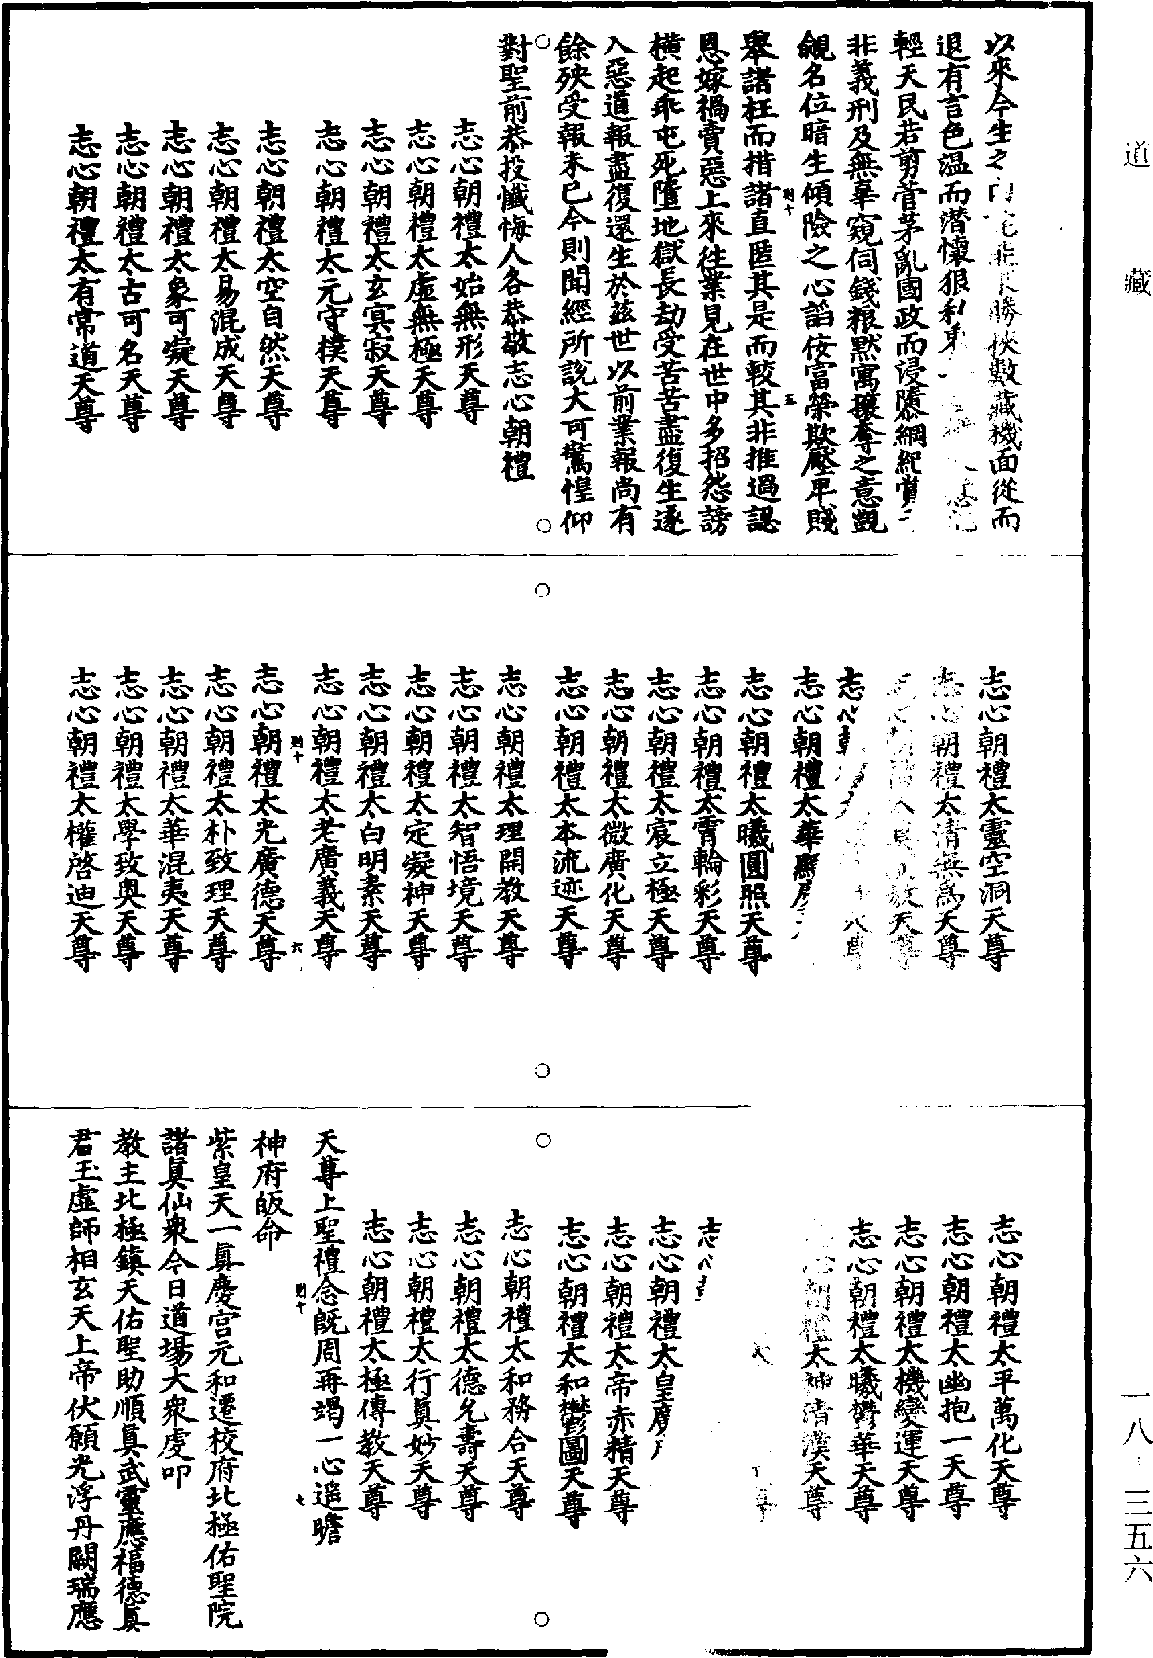 道藏
一八·三五六
以來今生之勝數藏機面從而
退有言色溫而潛懷狠利
輕天民若剪菅茅亂國政而浸隳綱紀賞
非義刑及無辜窺伺錢粮默寓攘奪之意覬
覦名位暗生傾險之心諂佞富榮欺壓卑賤
則十 五
舉諸枉而措諸直匿其是而較其非推過誣
恩嫁禍賣惡上來往業見在世中多招怨謗
橫起乖屯死墮地獄長劫受苦苦盡復生逐
入惡道報盡復還生於茲世以前業報尚有
餘殃受報未已今則聞經所說大可驚惶仰
對聖前恭投懺悔人各恭敬志心朝禮
志心朝禮太始無形天尊
志心朝禮太虛無極天尊
志心朝禮太玄冥寂天尊
志心朝禮太元守樸天尊
志心朝禮太空自然天尊
志心朝禮太易混成天尊
志心朝禮太象可凝天尊
志心朝禮太古可名天尊
志心朝禮太有常道天尊
志心朝禮太靈空洞天尊
志心朝禮太清無為天尊
教天尊
志心朝
志心朝禮太華
志心朝禮太曦圓照天尊
志心朝禮太霄輪彩天尊
志心朝禮太宸立極天尊
志心朝禮太微廣化天尊
志心朝禮太本流迹天尊
志心朝禮太理開教天尊
志心朝禮太智悟境天尊
志心朝禮太定凝神天尊
志心朝禮太白明素天尊
志心朝禮太老廣義天尊
則十 六
志心朝禮太光廣德天尊
志心朝禮太朴致理天尊
志心朝禮太華混夷天尊
志心朝禮太學致奧天尊
志心朝禮太權啓迪天尊
志心朝禮太平萬化天尊
志心朝禮太幽抱一天尊
志心朝禮太機變運天尊
志心朝禮太曦鬱華天尊
心朝禮太神清漢天尊
志心朝
志心朝禮太皇
志心朝禮太帝赤精天尊
志心朝禮太和鬱圖天尊
志心朝禮太和務合天尊
志心朝禮太德允壽天尊
志心朝禮太行真妙天尊
志心朝禮太極傳教天尊
天尊上聖禮念既周再竭一心遥瞻
則十 七
神府皈命
紫皇天一真慶宮元和遷校府北極佑聖院
諸真仙衆今日道場大衆虔叩
教主北極鎮天佑聖助順真武靈應福德真
君玉虛師相玄天上帝伏願光浮丹闕瑞應